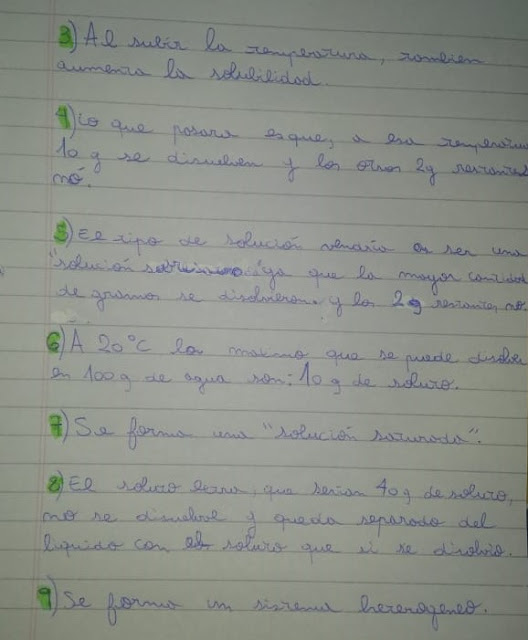 3) Al subir la temperatura, tambien
aumenta la solubilidad.
4) Lo que pasara es que, a esa temperatura
10 g se disuelven y los otros 2g restantes
nó.
5) El tipo de solución vendria a ser una
"solución " ya que la mayor cantidad
de gramos se disolvieron y los 2g restantes no.
6) A 20°C lo maximo que se puede disolver
en 100g de agua son: 10 g de soluto.
7) Se forma una "solución saturada".
8) El soluto extra, que serian 40g de soluto,
no se disuelve y queda separado del
liquido con el soluto que si se disolvio.
9) Se forma un sistema heterogeneo.